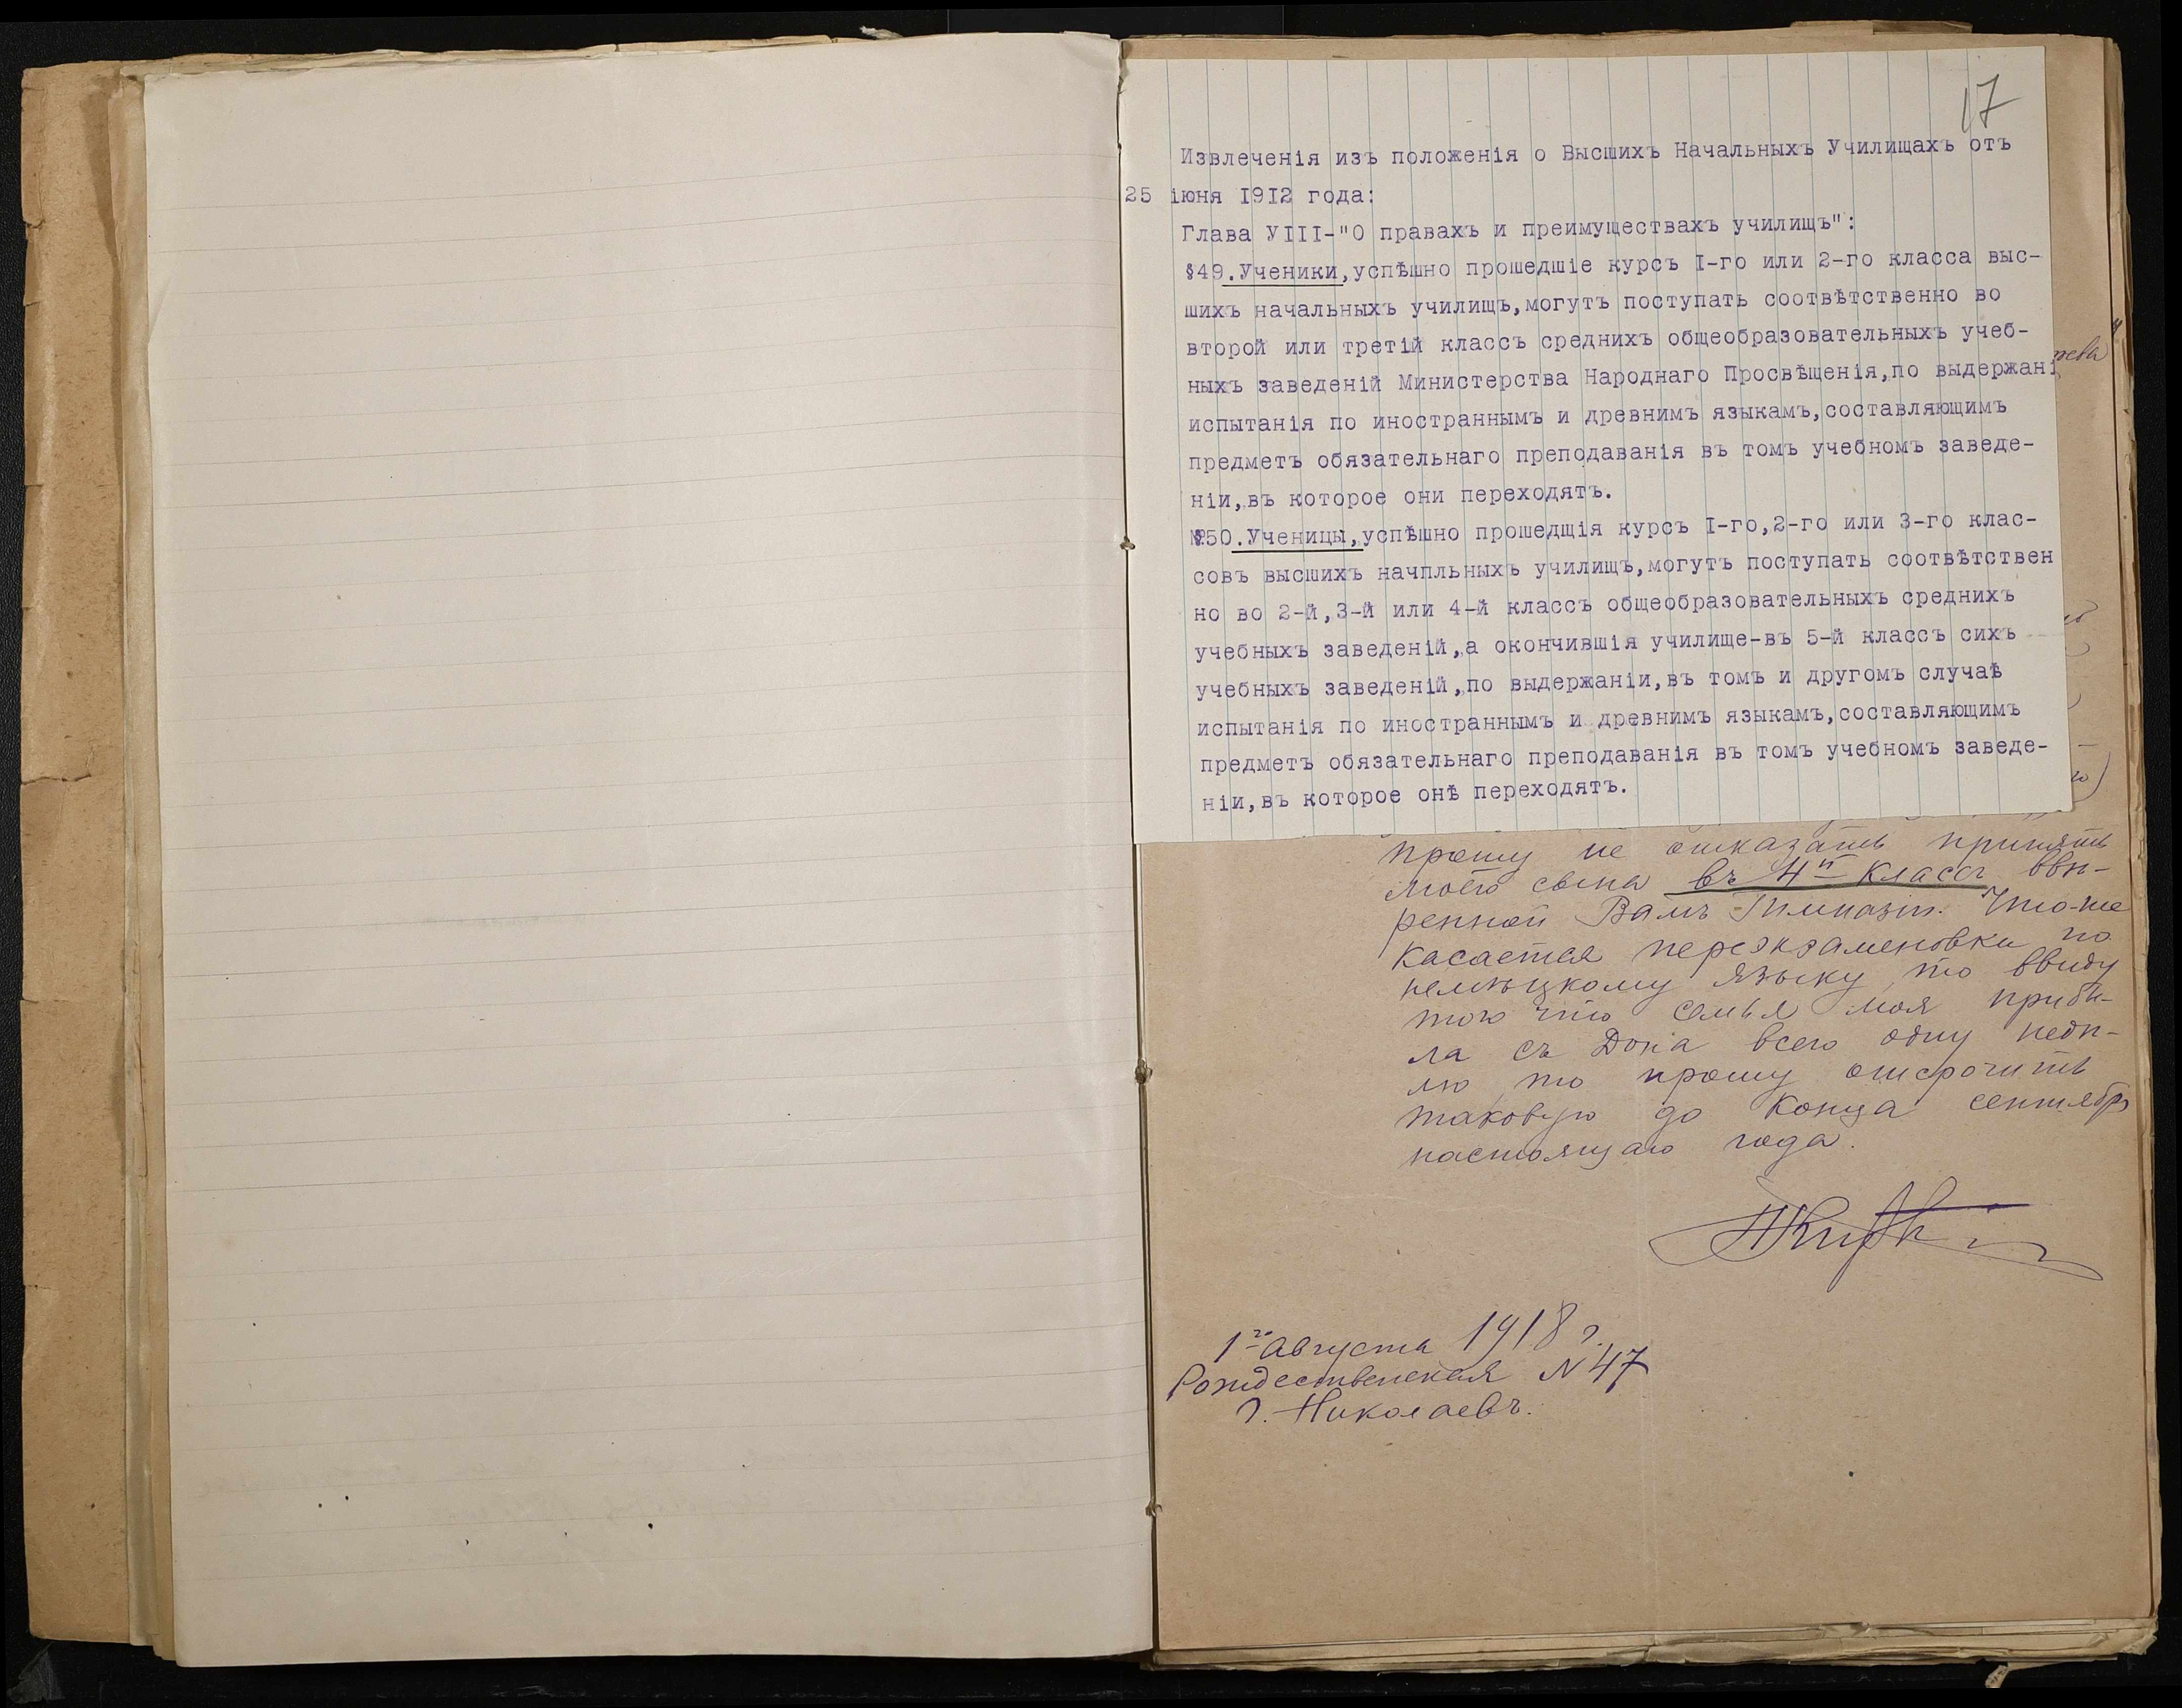 17
Извлеченія изъ положенія о Высшихъ Начальныхъ Училищахъ отъ
25 іюня 1912 года:
Глава УІІІ-"О правахъ и преимуществахъ училищъ":
§49.Ученики,успѣшно прошедшіе курсъ І-го или 2-го класса выс-
шихъ начальныхъ училищъ,могутъ поступать соотвѣтственно во
второй или третій классъ среднихъ общеобразовательныхъ учеб-
ныхъ заведеній Министерства Народнаго Просвѣщенія,по выдержані
испытанія по иностраннымъ и древнимъ языкамъ,составляющимъ
предметъ обязательнаго преподаванія въ томъ учебномъ заведе-
ніи,въ которое они переходятъ.
§50.Ученицы,успѣшно прошедщія курсъ І-го,2-го или 3-го клас-
совъ высшихъ начпльныхъ училищъ,могутъ поступать соотвѣтствен
но во 2-й,3-й или 4-й классъ общеобразовательныхъ среднихъ
учебныхъ заведеній,а окончившія училище-въ 5-й классъ сихъ
учебныхъ заведеній,по выдержаніи,въ томъ и другомъ случаѣ
испытанія по иностраннымъ и древнимъ языкамъ,составляющимъ
предметъ обязательнаго преподаванія въ томъ учебномъ заведе-
ніи,въ которое онѣ переходятъ.
прошу не отказать принять
моего сына въ 4й классъ ввѣ-
ренной Вамъ Гимназіи. Что-же
касается переэкзаменовки по
немѣцкому языку, то ввиду
того что семья моя прибы-
ла съ Дона всего одну недѣ-
лю то прошу отсрочить
таковую до конца сентября
настоящаго года.
1го Августа 1918 г.
Рождественская N 47
г. Николаевъ.